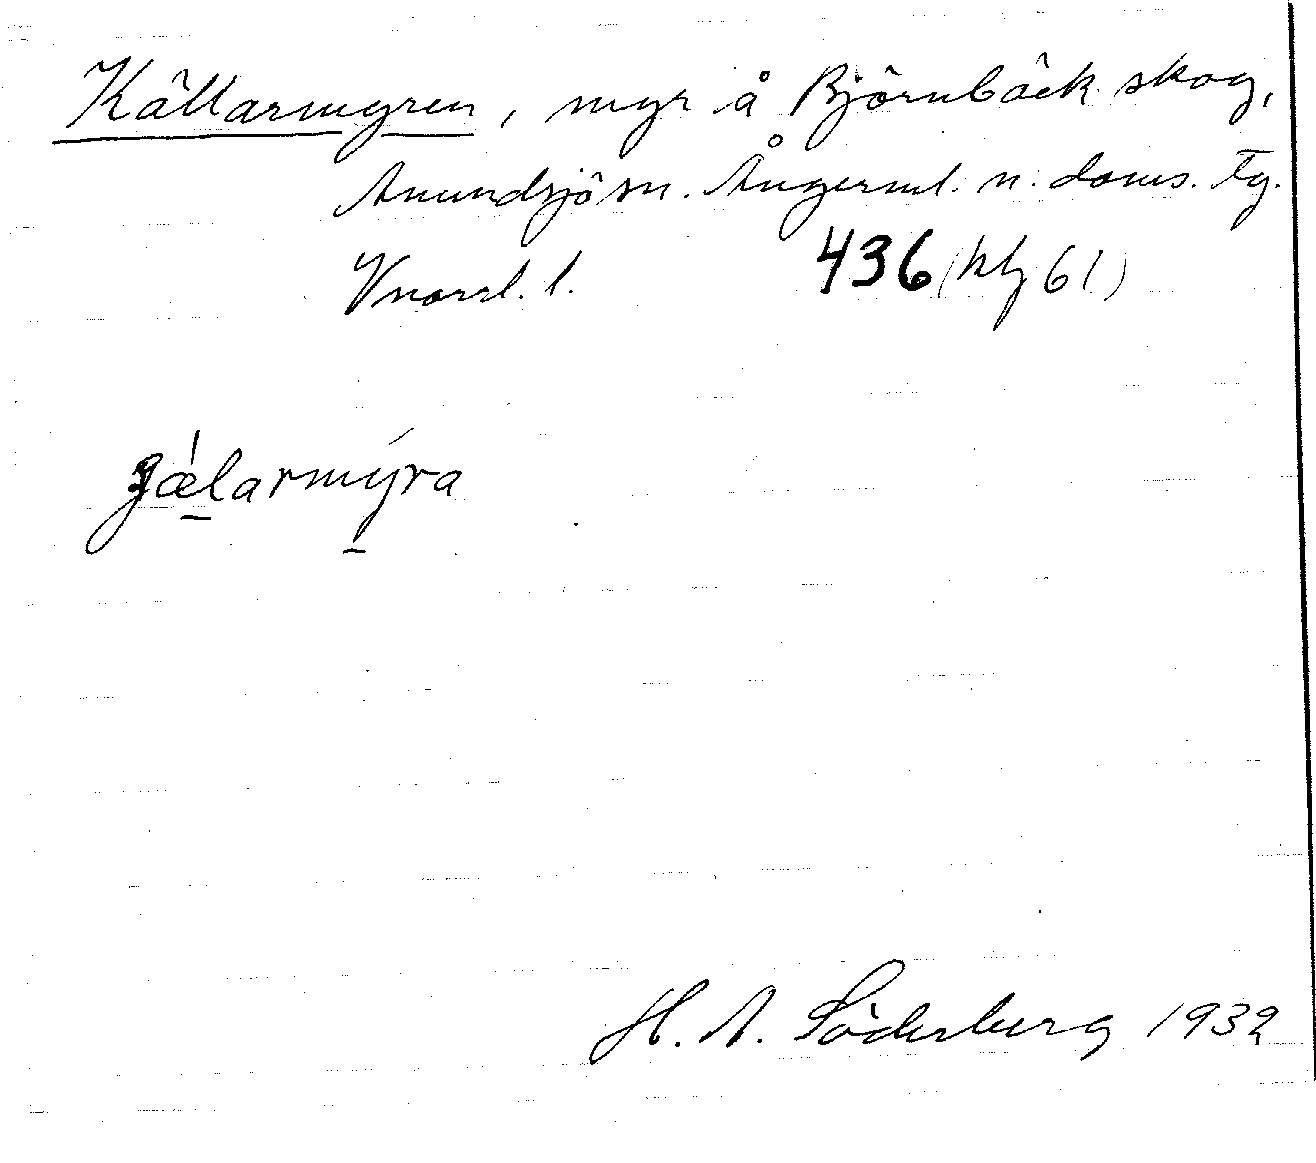 Källarmyren, myr å Björnbäck skog,
Anundsjö sn. Ångerml. n. doms. tg.
Vnorrl. l. 436 (hfj 61)
gálarmýra
H. A. Söderberg 1932